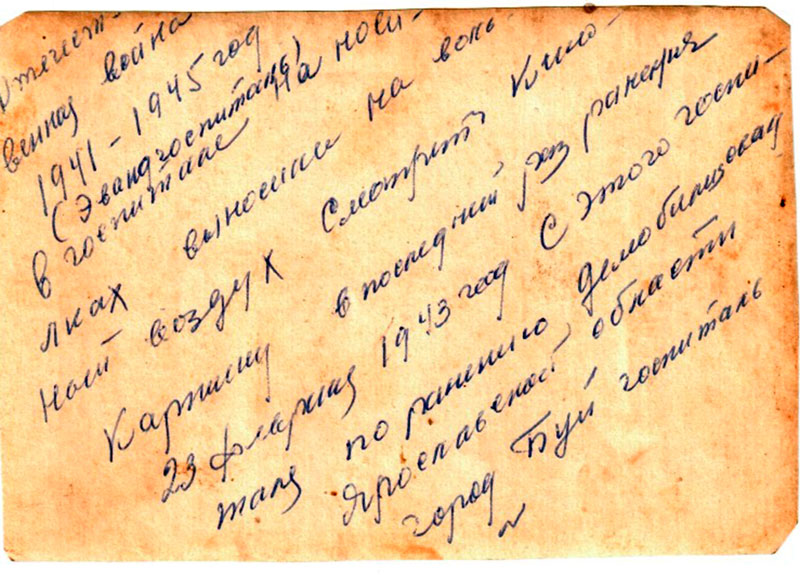 Отечест-
венная война
1941 - 1945 год
(Эвакгоспиталь)
в госпитале На носи-
лках выносили на воль-
ной воздух Смотрить Кино-
Картину в последний раз ранения
23 февраля 1943 год С этого госпи-
таля по ранению демобилизован
Ярославской области
город Буй госпиталь